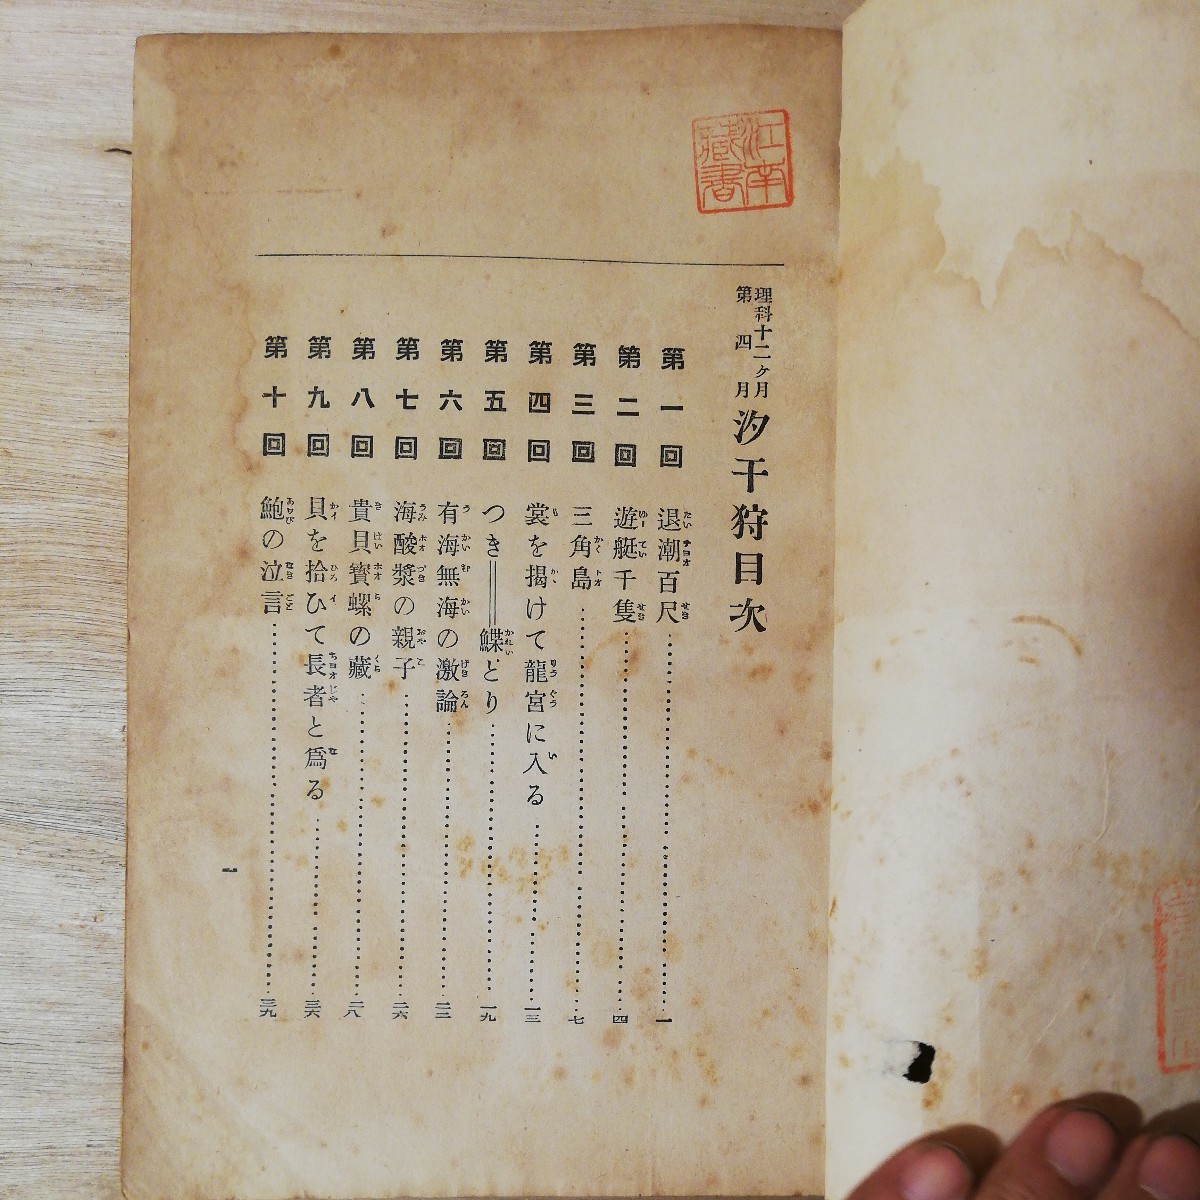 江南
藏書
理科十二ヶ月
第四月
汐干狩目次
第一回 退潮百尺 一
第二回 遊艇千隻 四
第三回 三角島 七
第四回 裳を揭けて龍宮に入る 一三
第五回 つき＝鰈とり 一九
第六回 有海無海の激論 二二
第七回 海酸漿の親子 二六
第八回 貴貝寳螺の藏 二八
第九回 貝を拾ひて長者と爲る 三六
第十回 鮑の泣言 三九
一